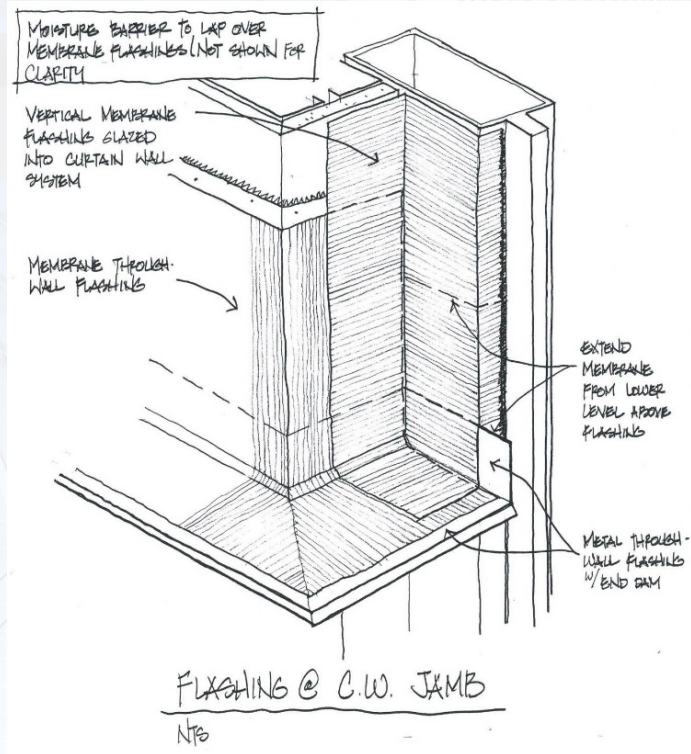 MOISTURE BARRIER TO LAP OVER
MEMBRANE FLASHINGS (NOT SHOWN FOR
CLARITY
VERTICAL MEMBRANE
FLASHING GLAZED
INTO CURTAIN WALL
SYSTEM
MEMBRANE THROUGH-
WALL FLASHING
EXTEND
MEMBRANE
FROM LOWER
LEVEL ABOVE
FLASHING
METAL THROUGH-
WALL FLASHING
W/ END DAM
FLASHING @ C.W. JAMB
NTS